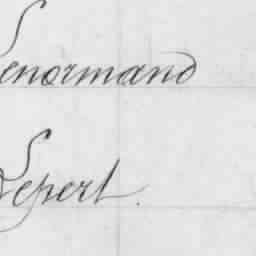 Lenormand
Lepert.